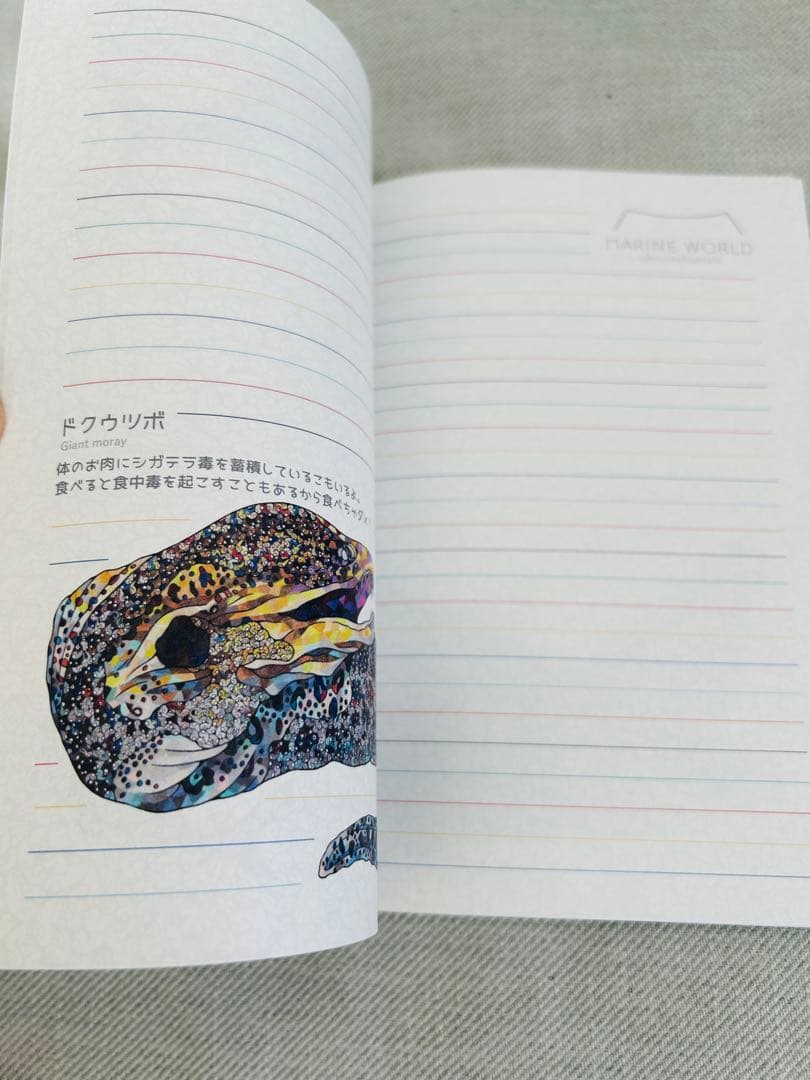 ドクウツボ
Giant moray
体のお肉にシガテラ毒を蓄積しているこもいるよ。
食べると食中毒を起こすこともあるから食べちゃダメ
MARINE WORLD